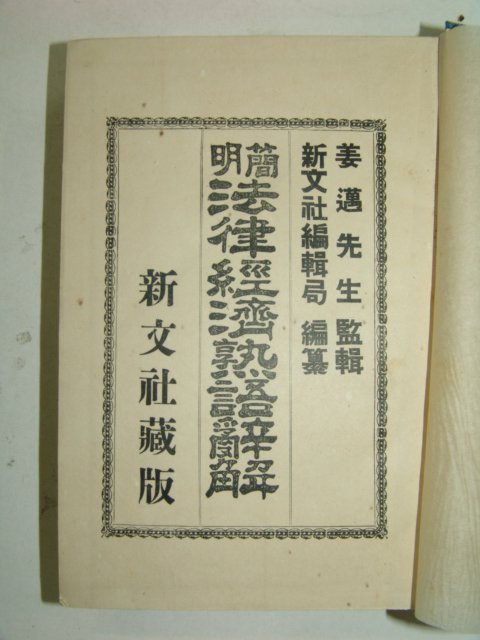 姜邁先生 監輯
新文社編輯局 編纂
簡明 法律經濟熟語辭解
新文社藏版